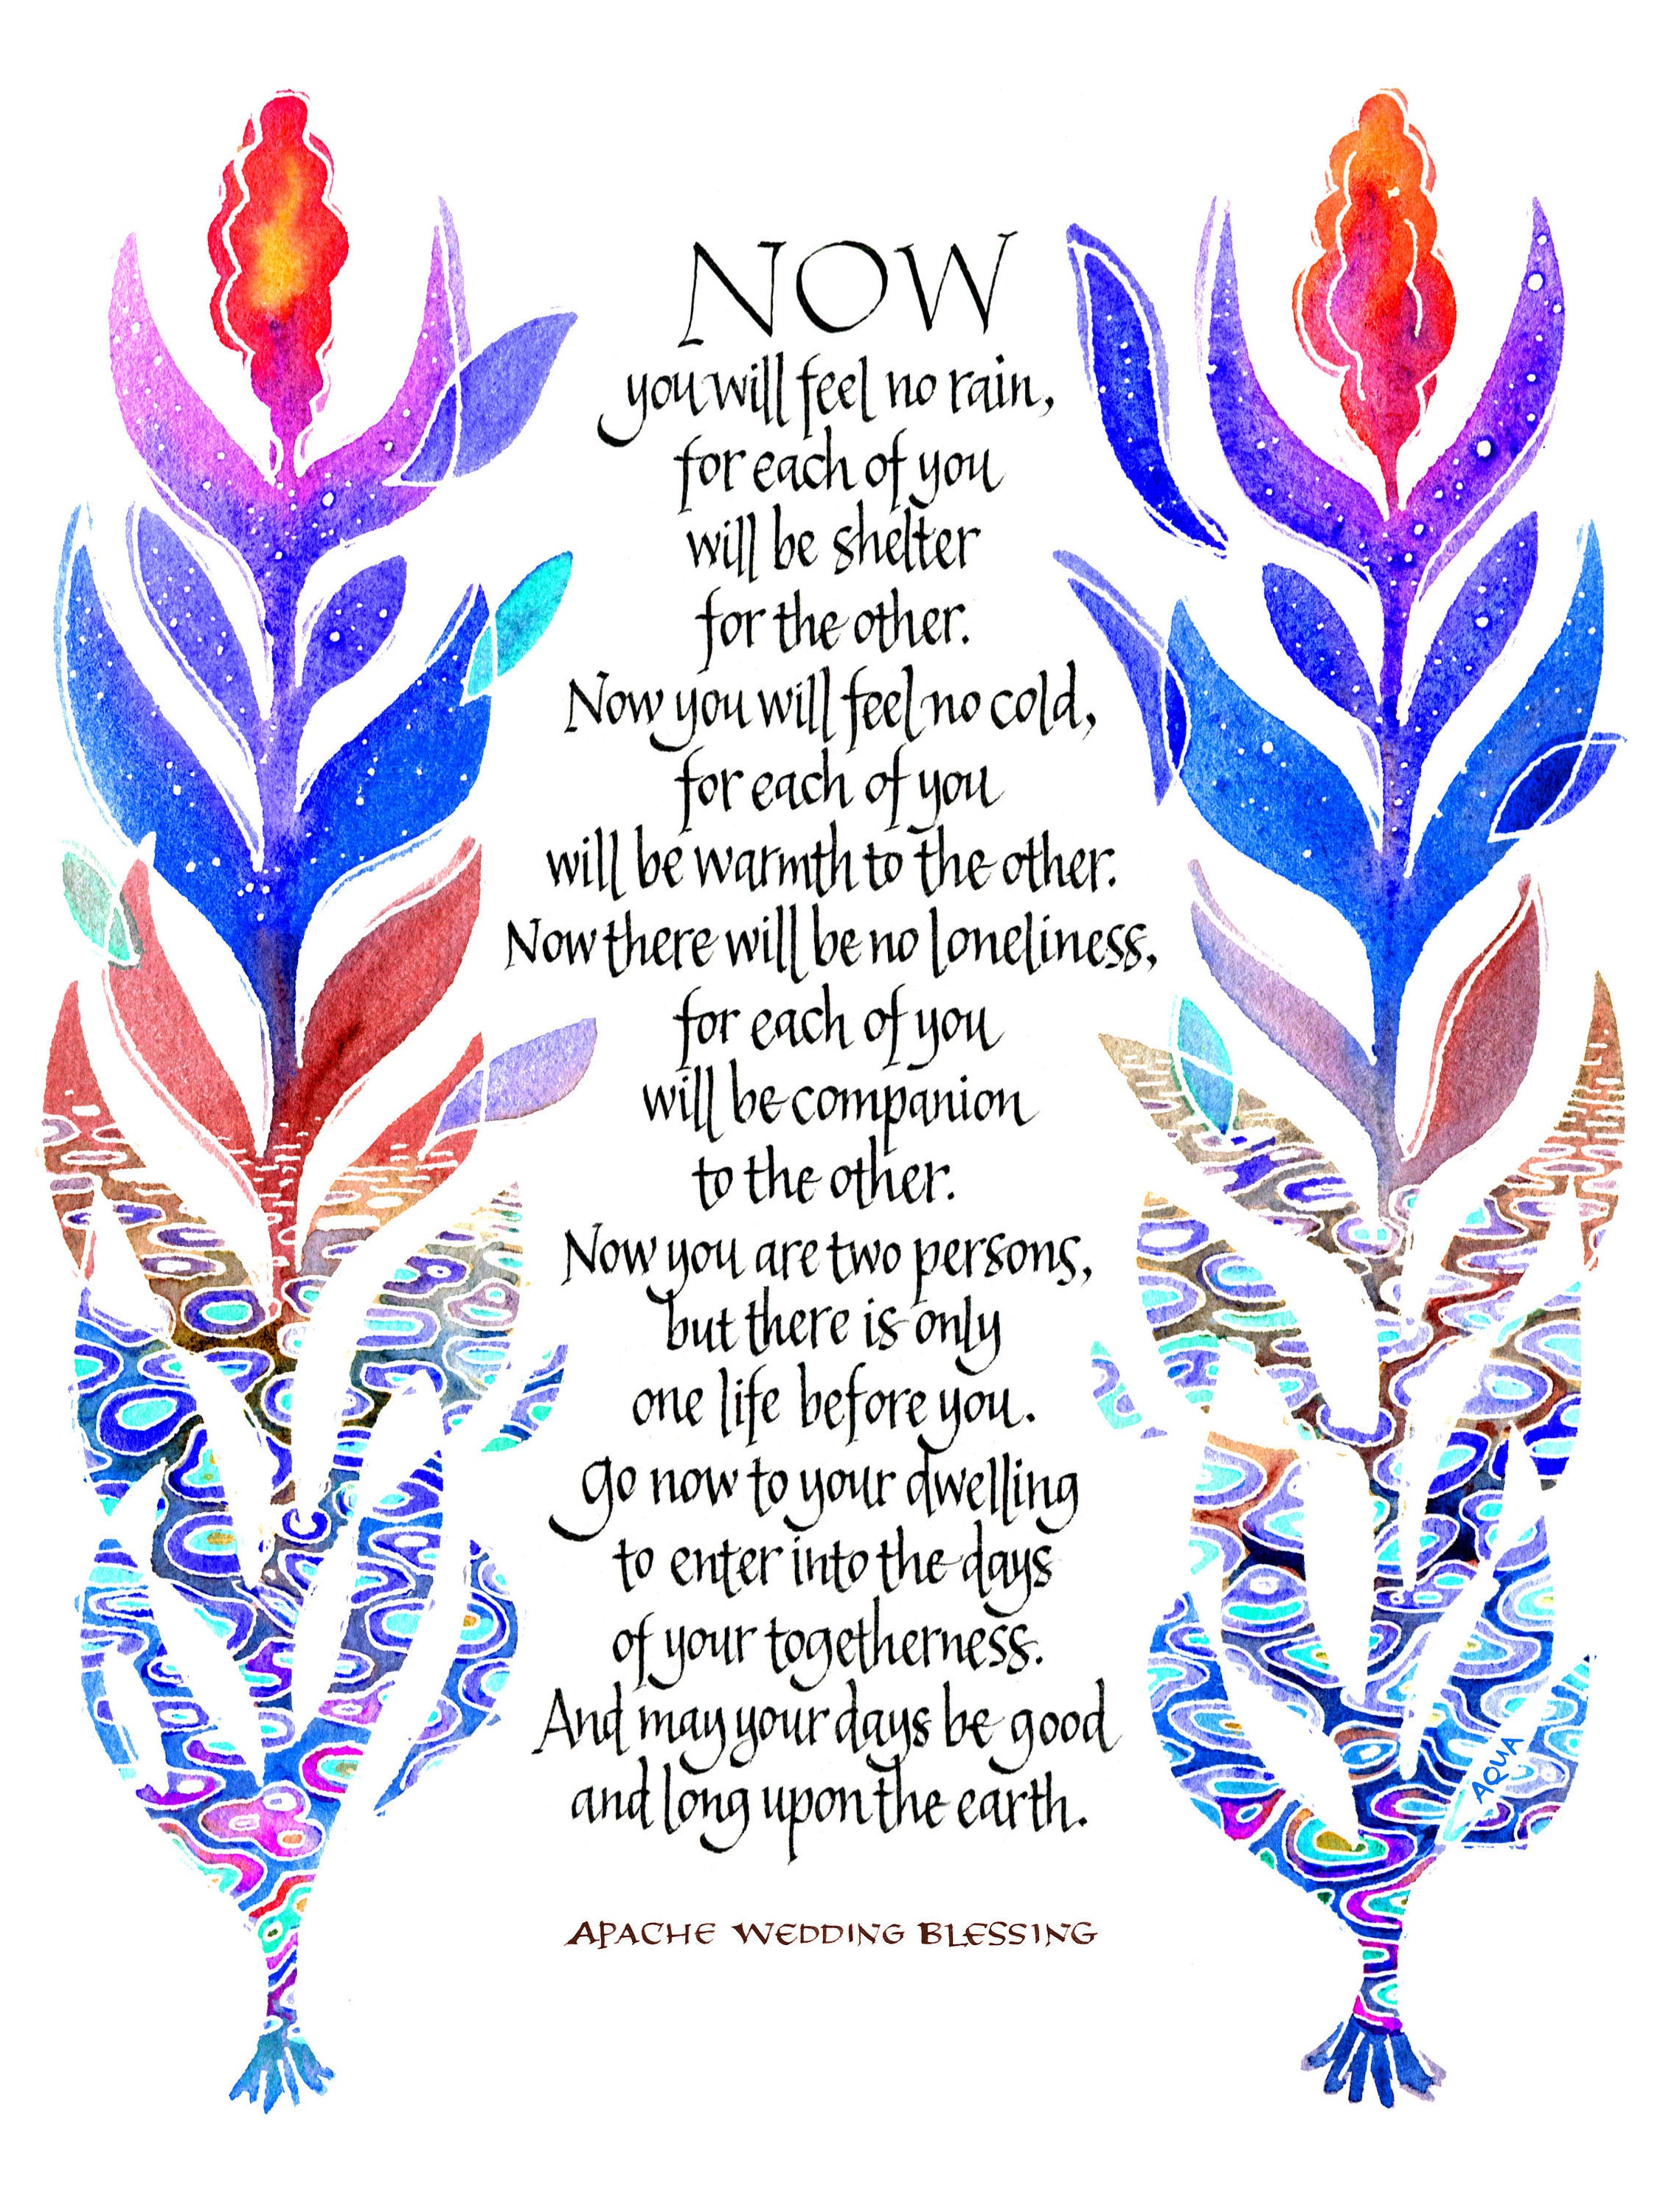 NOW
you will feel no rain,
for each of you
will be shelter
for the other.
Now you will feel no cold,
for each of you
will be warmth to the other.
Now there will be no loneliness,
for each of you
will be companion
to the other.
Now you are two persons,
but there is only
one life before you.
Go now to your dwelling
to enter into the days
of your togetherness.
And may your days be good
and long upon the earth.
APACHE WEDDING BLESSING
AQUA